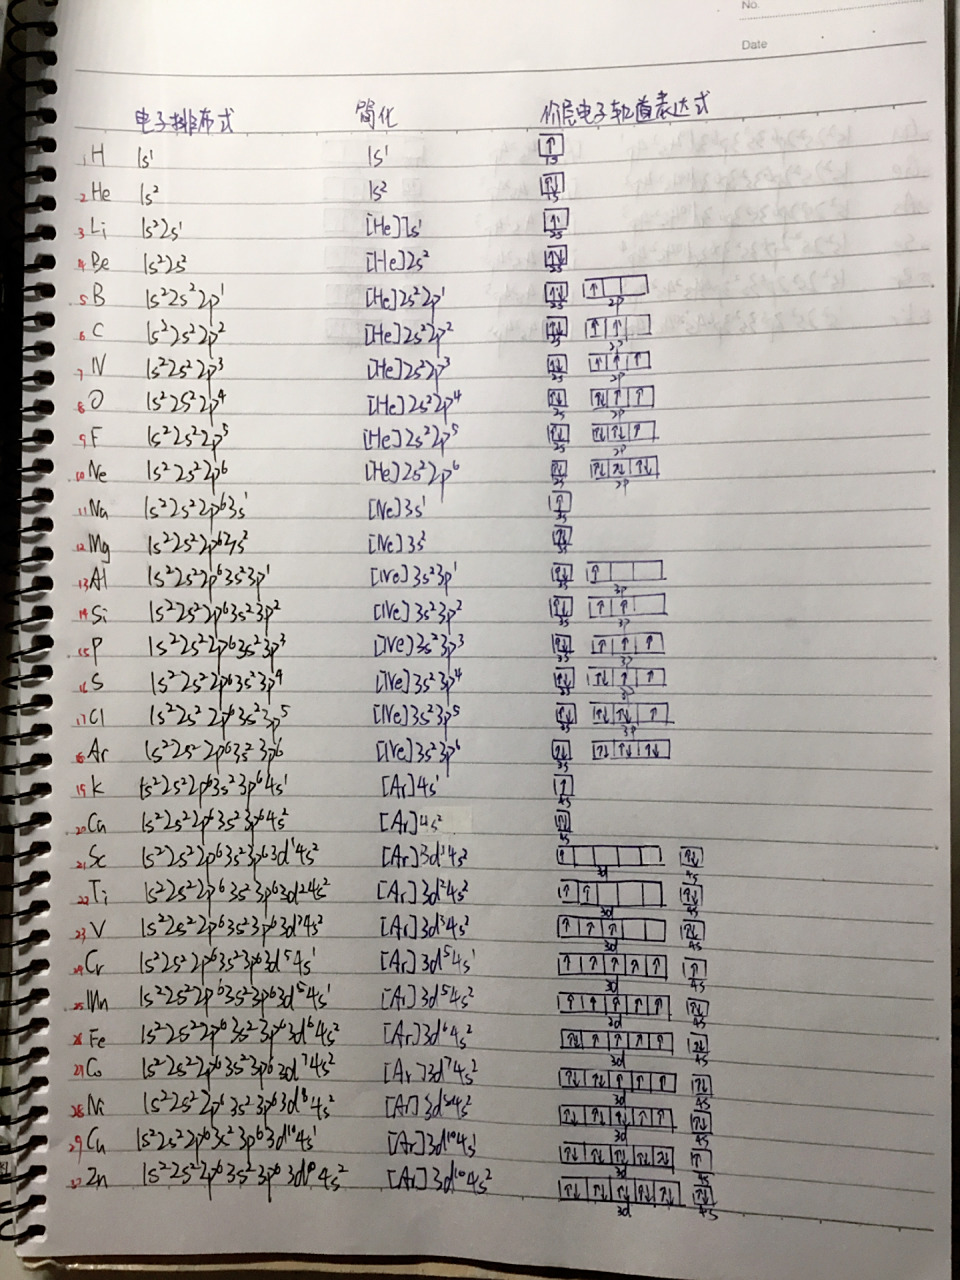 No.
Date
电子排布式 简化 价层电子轨道表达式
1 H 1s¹ 1s¹ ↑ 1s
2 He 1s² 1s² ↑↓ 1s
3 Li 1s²2s¹ [He]1s¹ ↑ 2s
4 Be 1s²2s² [He]2s² ↑↓ 2s
5 B 1s²2s²2p¹ [He]2s²2p¹ ↑↓ 2s ↑ 2p
6 C 1s²2s²2p² [He]2s²2p² ↑↓ 2s ↑ ↑ 2p
7 N 1s²2s²2p³ [He]2s²2p³ ↑↓ 2s ↑ ↑ ↑ 2p
8 O 1s²2s²2p⁴ [He]2s²2p⁴ ↑↓ 2s ↑↓ ↑ ↑ 2p
9 F 1s²2s²2p⁵ [He]2s²2p⁵ ↑↓ 2s ↑↓ ↑↓ ↑ 2p
10 Ne 1s²2s²2p⁶ [He]2s²2p⁶ ↑↓ 2s ↑↓ ↑↓ ↑↓ 2p
11 Na 1s²2s²2p⁶3s¹ [Ne]3s¹ ↑ 3s
12 Mg 1s²2s²2p⁶3s² [Ne]3s² ↑↓ 3s
13 Al 1s²2s²2p⁶3s²3p¹ [Ne]3s²3p¹ ↑↓ 3s ↑ 3p
14 Si 1s²2s²2p⁶3s²3p² [Ne]3s²3p² ↑↓ 3s ↑ ↑ 3p
15 P 1s²2s²2p⁶3s²3p³ [Ne]3s²3p³ ↑↓ 3s ↑ ↑ ↑ 3p
16 S 1s²2s²2p⁶3s²3p⁴ [Ne]3s²3p⁴ ↑↓ 3s ↑↓ ↑ ↑ 3p
17 Cl 1s²2s²2p⁶3s²3p⁵ [Ne]3s²3p⁵ ↑↓ 3s ↑↓ ↑↓ ↑ 3p
18 Ar 1s²2s²2p⁶3s²3p⁶ [Ne]3s²3p⁶ ↑↓ 3s ↑↓ ↑↓ ↑↓
19 K 1s²2s²2p⁶3s²3p⁶4s¹ [Ar]4s¹ ↑ 4s
20 Ca 1s²2s²2p⁶3s²3p⁶4s² [Ar]4s² ↑↓ 4s
21 Sc 1s²2s²2p⁶3s²3p⁶3d¹4s² [Ar]3d¹4s² ↑ 3d ↑↓ 4s
22 Ti 1s²2s²2p⁶3s²3p⁶3d²4s² [Ar]3d²4s² ↑ ↑ 3d ↑↓ 4s
23 V 1s²2s²2p⁶3s²3p⁶3d³4s² [Ar]3d³4s² ↑ ↑ ↑ 3d ↑↓ 4s
24 Cr 1s²2s²2p⁶3s²3p⁶3d⁵4s¹ [Ar]3d⁵4s¹ ↑ ↑ ↑ ↑ ↑ 3d ↑ 4s
25 Mn 1s²2s²2p⁶3s²3p⁶3d⁵4s¹ [Ar]3d⁵4s² ↑ ↑ ↑ ↑ ↑ 3d ↑↓ 4s
26 Fe 1s²2s²2p⁶3s²3p⁶3d⁶4s² [Ar]3d⁶4s² ↑↓ ↑ ↑ ↑ ↑ 3d ↑↓ 4s
27 Co 1s²2s²2p⁶3s²3p⁶3d⁷4s² [Ar]3d⁷4s² ↑↓ ↑↓ ↑ ↑ ↑ 3d ↑↓ 4s
28 Ni 1s²2s²2p⁶3s²3p⁶3d⁸4s² [Ar]3d⁸4s² ↑↓ ↑↓ ↑↓ ↑ ↑ 3d ↑↓ 4s
29 Cu 1s²2s²2p⁶3s²3p⁶3d¹⁰4s¹ [Ar]3d¹⁰4s¹ ↑↓ ↑↓ ↑↓ ↑↓ ↑↓ 3d ↑ 4s
30 Zn 1s²2s²2p⁶3s²3p⁶3d¹⁰4s² [Ar]3d¹⁰4s² ↑↓ ↑↓ ↑↓ ↑↓ ↑↓ 3d ↑↓ 4s